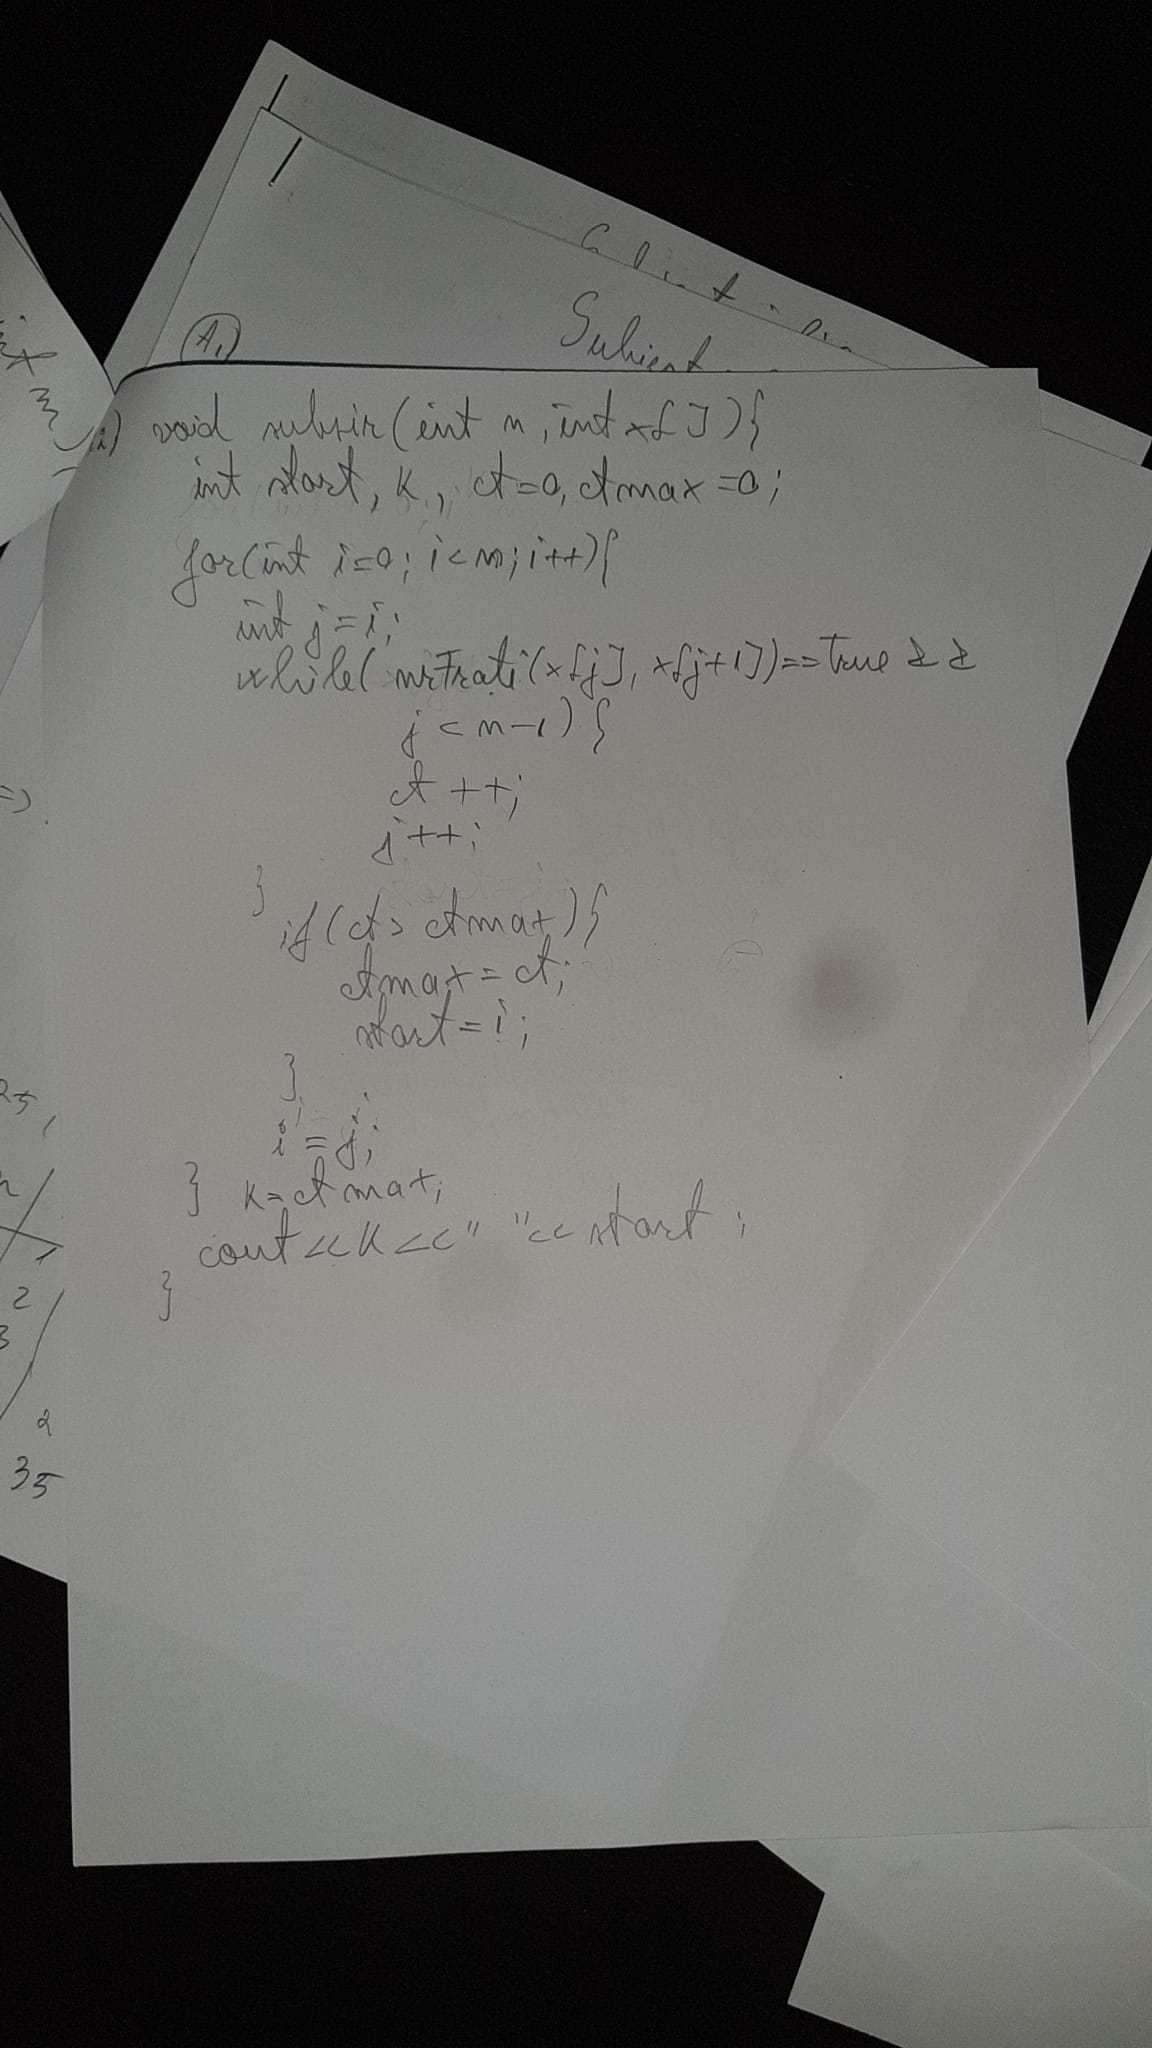 A1)
Subiect
2) void subsir(int n, int x[]){
int start, k, ct=0, ctmax=0;
for(int i=0; i<n; i++){
int j=i;
while( nrFrati(x[j], x[j+1])==True &&
j<n-1) {
ct ++;
j++;
}
if(ct> ctmax){
ctmax=ct;
start=i;
}
i=j;
} k=ctmax;
cout<<k<<" "<<start;
}
=)
25,
2
3
2
35